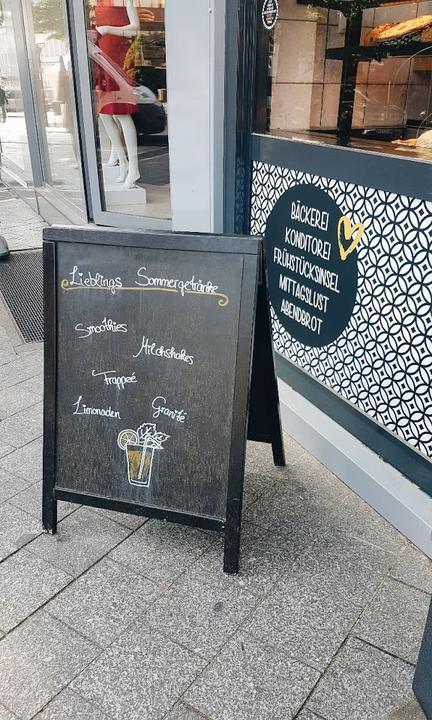 Lieblings Sommergetränke
Smoothies
Milchshakes
Frappeé
Limonaden Granité
BÄCKEREI
KONDITOREI
FRÜHSTÜCKSINSEL
MITTAGSLUST
ABENDBROT